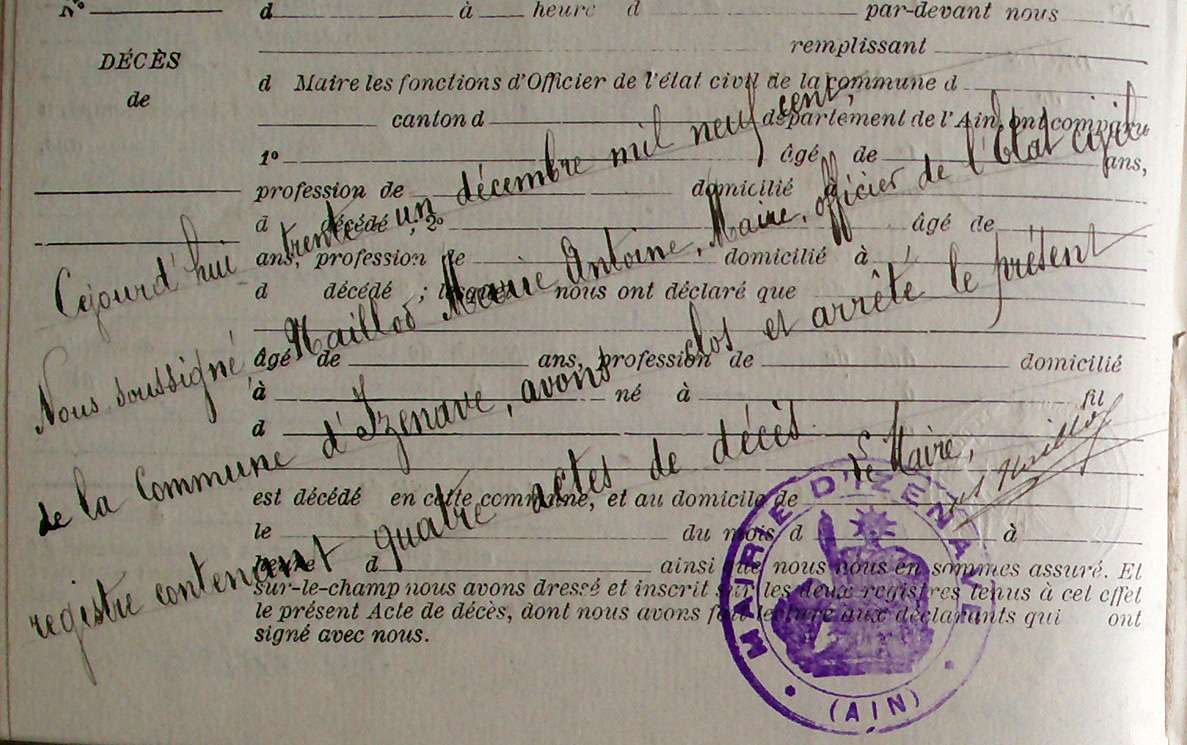 N°
d à heure d par-devant nous
DÉCÈS
de
remplissant
d Maire les fonctions d'Officier de l'état civil de la commune d
canton d département de l'Ain, ont comparu
1° âgé de ans,
profession de domicilié
d décédé, 2° âgé de
ans, profession de domicilié à
d décédé ; lesquels nous ont déclaré que
âgé de ans, profession de domicilié
à né à fil
d
est décédé en cette commune, et au domicile de
le du mois d à
heure d ainsi que nous nous en sommes assuré. Et
sur-le-champ nous avons dressé et inscrit sur les deux registres tenus à cet effet
le présent Acte de décès, dont nous avons fait lecture aux déclarants qui ont
signé avec nous.
Cejourd'hui trente un décembre mil neuf cent,
Nous soussigné Maillod Marie Antoine, Maire, officier de l'État civil
de la Commune d'Izenave, avons clos et arrête le présent
registre contenant quatre actes de décès.
Le Maire,
MAIRIE D'IZENAVE
(AIN)